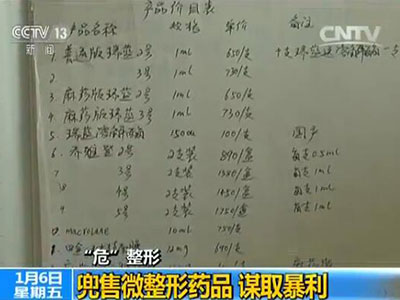 CCTV 13
新闻
CNTV
产品价目表
产品名称 规格 单价 备注
1. 普通版球蓝2号 1ml 650/支
2. 3号 1ml 730/支
3. 麻药版球蓝2号 1ml 650/支
4. 麻药版球蓝3号 1ml 730/支
5. 150u 100/支 国产
6. 乔雅登2号 2支装 890/盒 每支0.5ml
7 3号 2支装 /盒 每支1ml
8 4号 2支装 1450/盒 每支1ml
9 5号 2支装 1750/盒 每支1ml
10 macrolane 10ml 750/支
690/支
“危”整形
1月6日
星期五
兜售微整形药品 谋取暴利